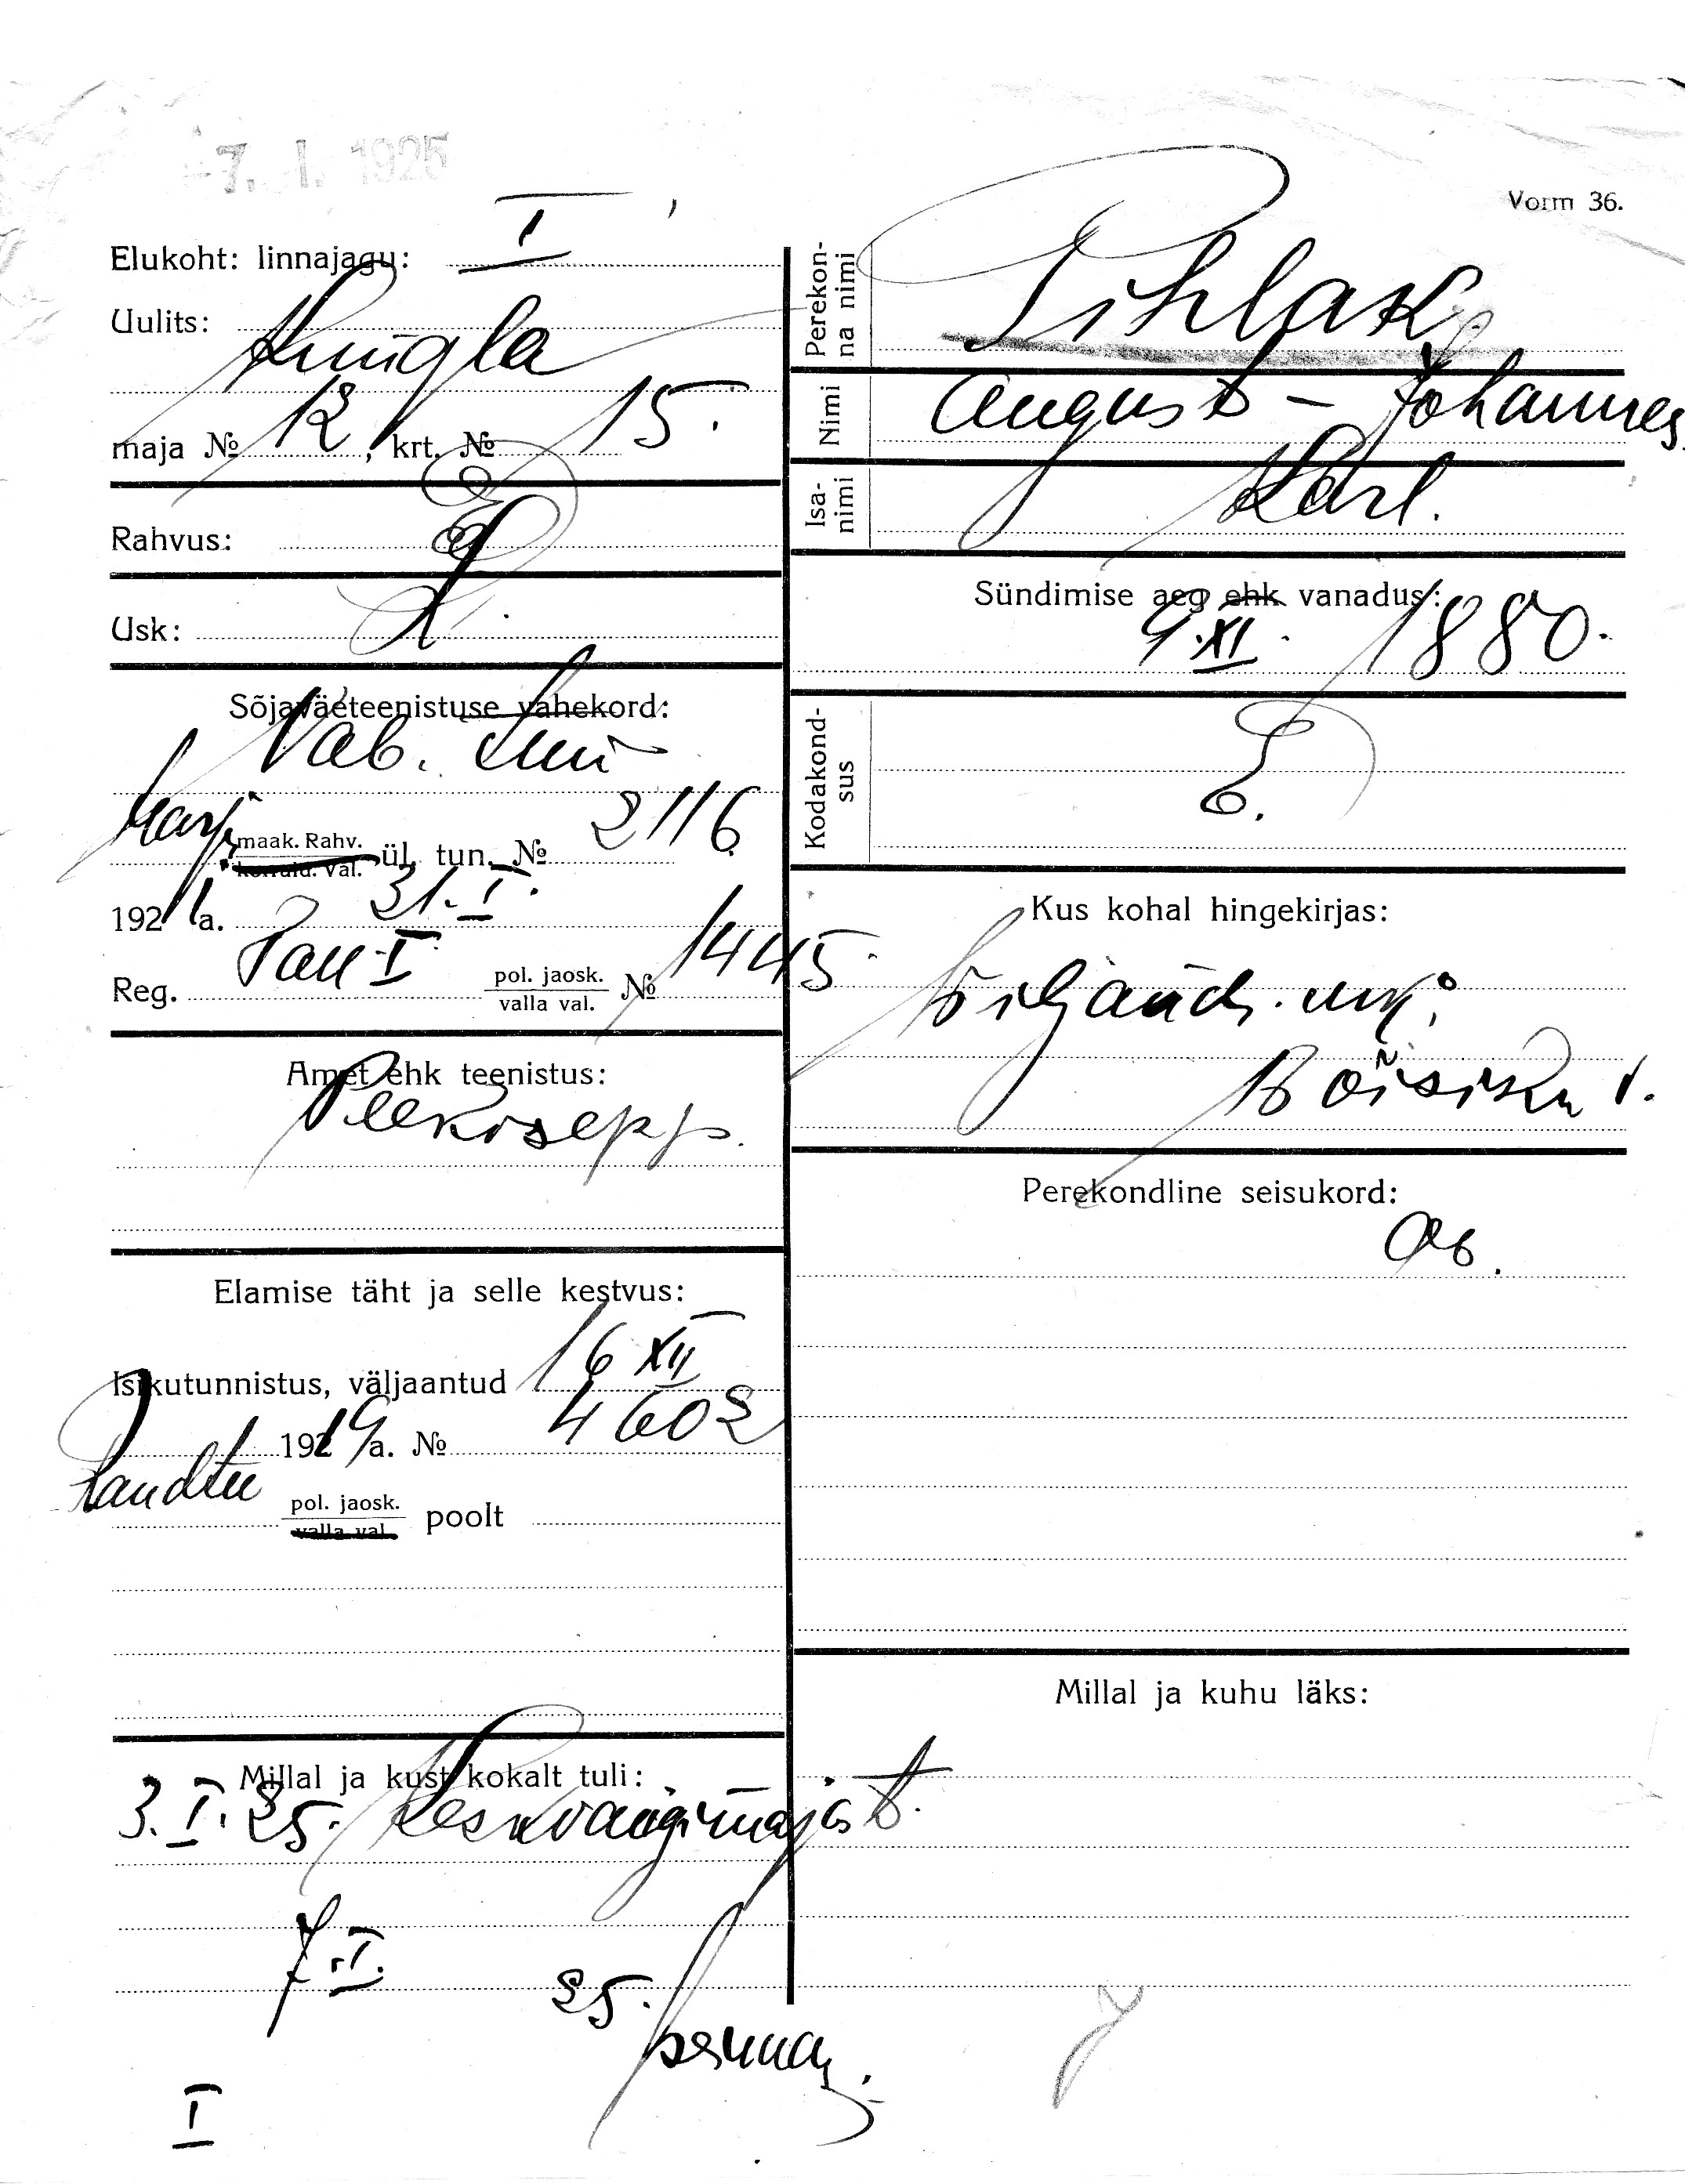 7. I. 1925
Vorm 36.
Elukoht: linnajagu: I
Uulits: Kungla
maja № 12, krt. № 15.
Rahvus: E
Usk: L.
Sõjaväeteenistuse vahekord:
Vab.
Harju maak. Rahv. komuid. Val. ül. tun. № 2116
1921 a. 31. I.
Reg. Tall. I pol. jaosk. valla val. № 1445.
Amet ehk teenistus:
Plekisepp.
Elamise täht ja selle kestvus:
Isikutunnistus, väljaantud 16 XII
1919 a. № 4602
Randtee pol. jaosk. valla val. poolt
Millal ja kust kokalt tuli:
3. I. 25. Keskvangimajast.
7. I. 25.
I
Perekonna nimi
Pihlak
Nimi
August - Johannes
Isanimi
Karl.
Sündimise aeg ehk vanadus:
9. XI. 1880.
Kodakondsus
E.
Kus kohal hingekirjas:
Viljandi. mk.
Võisiku v.
Perekondline seisukord:
Ab.
Millal ja kuhu läks: